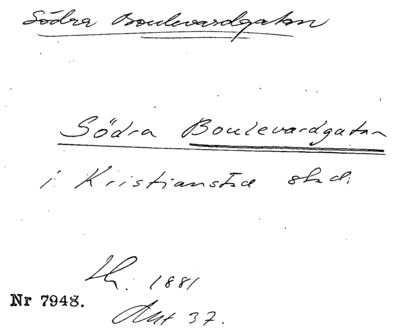 Södra Boulevardgatan
Södra Boulevardgatan
i Kristianstad stad.
1881
Nr 7948.
37.